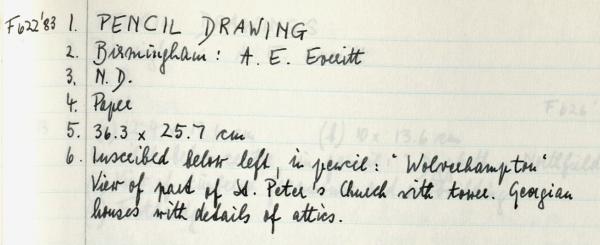 F622'83 1. PENCIL DRAWING
2. Birmingham: A. E. Everitt
3. N.D.
4. Paper
5. 36.3 x 25.7 cm
6. Inscribed below left, in pencil: "Wolverhampton"
View of part of St. Peter's Church with tower. Georgian
houses with details of attics.
F626'
(b) 10 x 13.6 cm